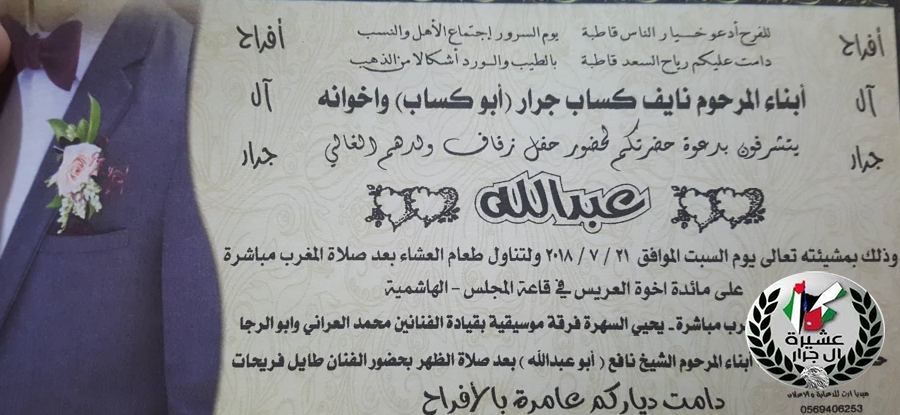 للفرح أدعو خيار الناس قاطبة يوم السرور إجتماع الأهل والنسب
دامت عليكم رياح السعد قاطبة بالطيب والورد أشكالا من الذهب
أفراح
آل
جرار
أفراح
آل
جرار
أبناء المرحوم نايف كساب جرار (أبو كساب) واخوانه
يتشرفون بدعوة حضرتكم لحضور حفل زفاف ولدهم الغالي
عبدالله
وذلك بمشيئته تعالى يوم السبت الموافق ٢١ / ٧ / ٢٠١٨ ولتناول طعام العشاء بعد صلاة المغرب مباشرة
على مائدة اخوة العريس في قاعة المجلس - الهاشمية
مباشرة - يحيي السهرة فرقة موسيقية بقيادة الفنانين محمد العراني وابو الرجا
أبناء المرحوم الشيخ نافع ( أبو عبدالله ) بعد صلاة الظهر بحضور الفنان طايل فريحات
دامت دياركم عامرة بالأفراح
عشيرة
ال جرار
ميديا ارت للدعاية والاعلان
0569406253